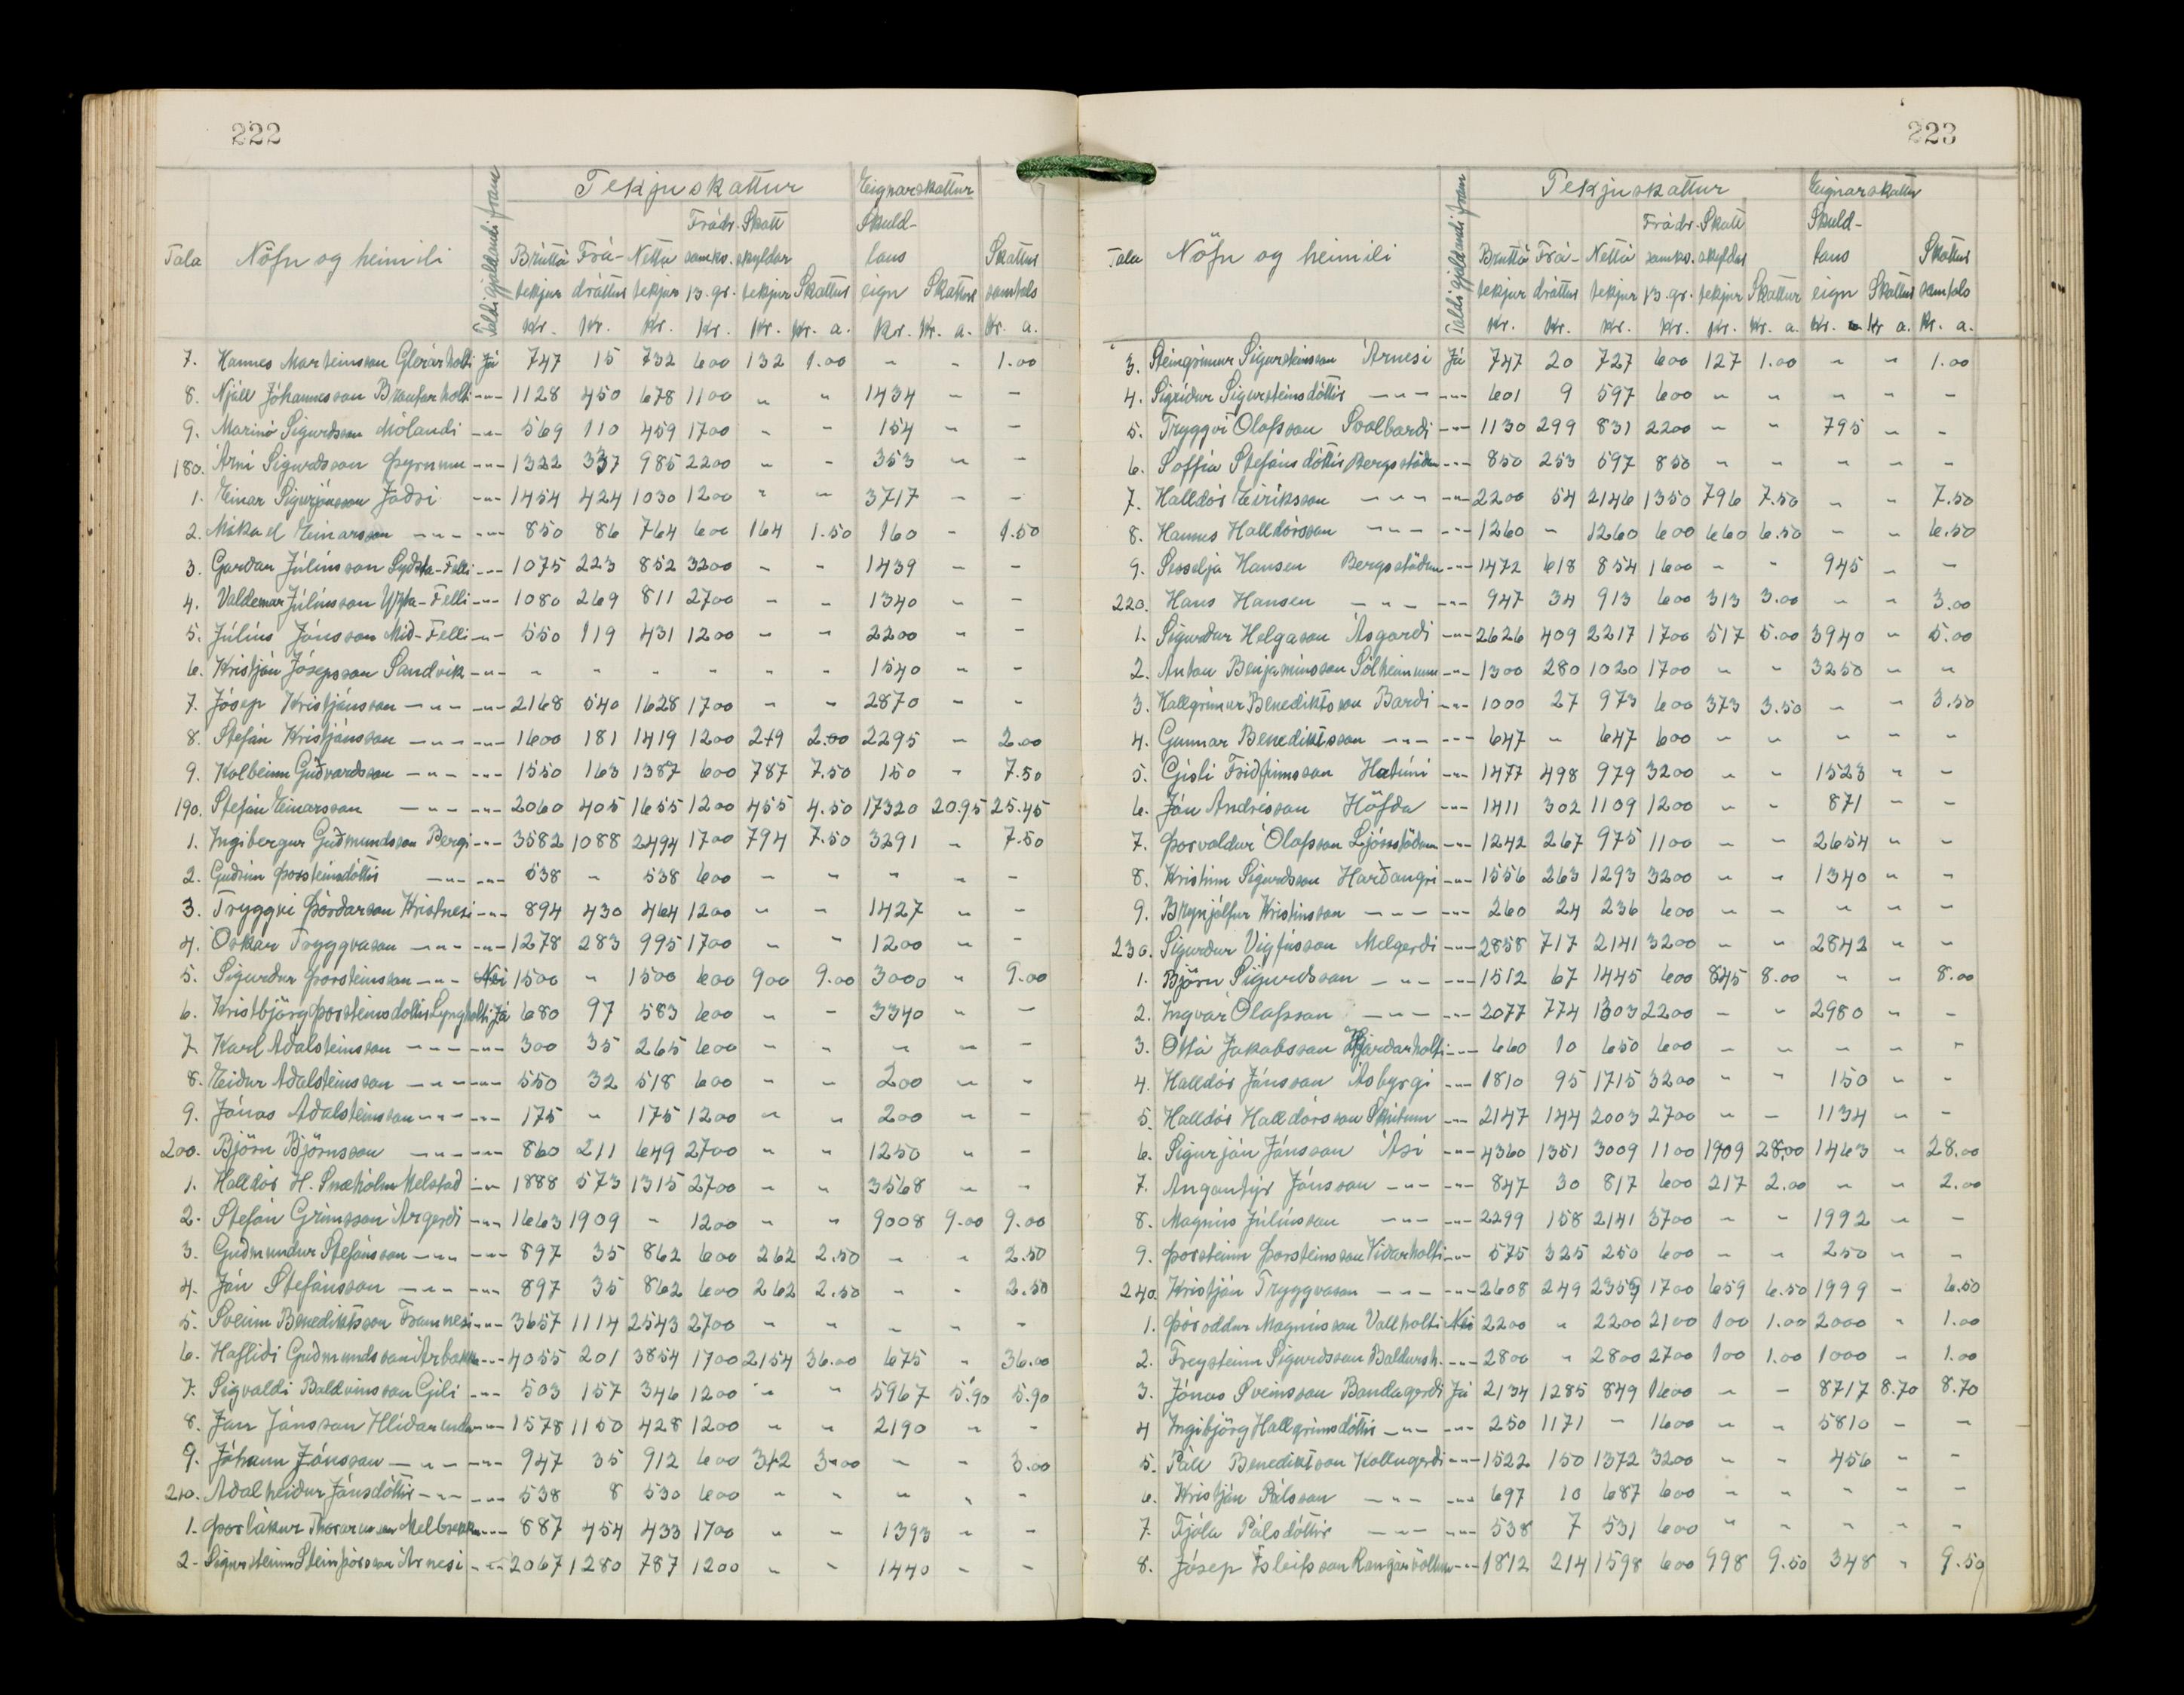 222
Tala Nöfn og heimili Taldi gjaldandi fram Tekjuskattur Eignarskattur
Brúttó tekjur Kr. Frá-dráttur Kr. Nettó tekjur Kr. Frádr. samks. 13. gr. Kr. Skatt skyldar tekjur Kr. Skattur Kr. a. Skuld-laus eign Kr. Skattur Kr. a. Skattur samtals Kr. a.
7. Hannes Marteinsson Glerárholti Já 747 15 732 600 132 1.00 " - 1.00
8. Njáll Jóhannesson Brautarholti -"- 1128 450 678 1100 " " 1434 - -
9. Marinó Sigurðsson Mólandi -"- 569 110 459 1700 " " 154 - -
180. Árni Sigurðsson Þyrnum -"- 1322 337 985 2200 " " 353 " -
1. Einar Sigurjónsson Jaðri -"- 1454 424 1030 1200 " " 3717 - -
2. Mikael Einarsson -"- -"- 850 86 764 600 164 1.50 160 - 1.50
3. Garðar Júlíusson Syðsta-Felli -"- 1075 223 852 3200 - " 1439 - -
4. Valdemar Júlíusson Yzta-Felli -"- 1080 269 811 2700 - - 1340 " -
5. Júlíus Jónsson Mið-Felli -"- 550 119 431 1200 " " 2200 " -
6. Kristján Jósepsson Sandvík -"- - - - - - - 1540 " -
7. Jósep Kristjánsson -"- -"- 2168 540 1628 1700 " " 2870 - -
8. Stefán Kristjánsson -"- -"- 1600 181 1419 1200 219 2.00 2295 - 2.00
9. Kolbeinn Guðvarðsson -"- -"- 1550 163 1387 600 787 7.50 150 " 7.50
190. Stefán Einarsson -"- -"- 2060 405 1655 1200 455 4.50 17320 20.95 25.45
1. Ingibergur Guðmundsson Bergi -"- 3582 1088 2494 1700 794 7.50 3291 - 7.50
2. Guðrún Þorsteinsdóttir -"- -"- 538 - 538 600 - " " - -
3. Tryggvi Þórðarson Kristnesi -"- 894 430 464 1200 " " 1427 " -
4. Óskar Tryggvason -"- -"- 1278 283 995 1700 " " 1200 " -
5. Sigurður Þorsteinsson -"- Nei 1500 " 1500 600 900 9.00 3000 " 9.00
6. Kristbjörg Þorsteinsdóttir Lyngholti Já 680 97 583 600 " - 3340 " -
7. Karl Aðalsteinsson -"- -"- 300 35 265 600 - " " - -
8. Eiður Aðalsteinsson -"- -"- 550 32 518 600 - " 200 " -
9. Jónas Aðalsteinsson -"- -"- 175 " 175 1200 " " 200 " -
200. Björn Björnsson -"- -"- 860 211 649 2700 " " 1250 " -
1. Halldór H. Snæhólm Melstað -"- 1888 573 1315 2700 - " 3568 " -
2. Stefán Grímsson Árgerði -"- 1663 1909 - 1200 " " 9008 9.00 9.00
3. Guðmundur Stefánsson -"- -"- 897 35 862 600 262 2.50 - " 2.50
4. Jón Stefánsson -"- -"- 897 35 862 600 262 2.50 " " 2.50
5. Sveinn Benediktsson Framnesi -"- 3657 1114 2543 2700 " " " " -
6. Hafliði Guðmundsson Árbakka -"- 4055 201 3854 1700 2154 36.00 675 " 36.00
7. Sigvaldi Baldvinsson Gili -"- 503 157 346 1200 " " 5967 5.90 5.90
8. Jón Jónsson Hlíðarenda -"- 1578 1150 428 1200 " " 2190 " -
9. Jóhann Jónsson -"- -"- 947 35 912 600 312 3.00 - " 3.00
210. Aðalheiður Jónsdóttir -"- -"- 538 8 530 600 " " " " -
1. Þorlákur Thorarensen Melbrekku -"- 887 454 433 1700 " " 1393 " -
2. Sigursteinn Steinþórsson Árnesi -"- 2067 1280 787 1200 " " 1440 - -
223
Tala Nöfn og heimili Taldi gjaldandi fram Tekjuskattur Eignarskattur
Brúttó tekjur Kr. Frá-dráttur Kr. Nettó tekjur Kr. Frádr. samks. 13. gr. Kr. Skatt skyldar tekjur Kr. Skattur Kr. a. Skuld-laus eign Kr. Skattur Kr a. Skattur samtals Kr. a.
3. Steingrímur Sigursteinsson Árnesi Já 747 20 727 600 127 1.00 " " 1.00
4. Sigríður Sigursteinsdóttir -"- -"- 601 9 597 600 " " " " -
5. Tryggvi Ólafsson Svalbarði -"- 1130 299 831 2200 - " 795 " -
6. Soffía Stefánsdóttir Bergsstöðum -"- 850 253 597 850 " " " " -
7. Halldór Eiríksson -"- -"- 2200 54 2146 1350 796 7.50 " " 7.50
8. Hannes Halldórsson -"- -"- 1260 - 1260 600 660 6.50 - " 6.50
9. Sesselja Hansen Bergsstöðum -"- 1472 618 854 1600 - " 945 - -
220. Hans Hansen -"- -"- 947 34 913 600 313 3.00 " " 3.00
1. Sigurður Helgason Ásgarði -"- 2626 409 2217 1700 517 5.00 3940 " 5.00
2. Anton Benjamínsson Sólheimum -"- 1300 280 1020 1700 " " 3250 " "
3. Hallgrímur Benediktsson Barði -"- 1000 27 973 600 373 3.50 - " 3.50
4. Gunnar Benediktsson -"- -"- 647 " 647 600 " " " " "
5. Gísli Friðfinnsson Hátúni -"- 1477 498 979 3200 " " 1523 " -
6. Jón Andrésson Höfða -"- 1411 302 1109 1200 " " 871 " -
7. Þorvaldur Ólafsson Ljónsstöðum -"- 1242 267 975 1100 - " 2654 " -
8. Kristinn Sigurðsson Harðangri -"- 1556 263 1293 3200 " " 1340 " "
9. Brynjólfur Kristinsson -"- -"- 260 24 236 600 " " " " "
230. Sigurður Vigfússon Melgerði -"- 2858 717 2141 3200 " " 2842 " -
1. Björn Sigurðsson -"- -"- 1512 67 1445 600 845 8.00 " " 8.00
2. Ingvar Ólafsson -"- -"- 2077 774 1303 2200 - " 2980 " -
3. Ottó Jakobsson Bjarðarholti -"- 660 10 650 600 - - - " "
4. Halldór Jónsson Ásbyrgi -"- 1810 95 1715 3200 " " 150 " -
5. Halldór Halldórsson Skútum -"- 2147 144 2003 2700 " - 1134 " -
6. Sigurjón Jónsson Ási -"- 4360 1351 3009 1100 1909 28.00 1463 " 28.00
7. Angantýr Jónsson -"- -"- 847 30 817 600 217 2.00 " " 2.00
8. Magnús Júlíusson -"- -"- 2299 158 2141 3700 - " 1992 " -
9. Þorsteinn Þorsteinsson Viðarholti -"- 575 325 250 600 - " 250 " -
240. Kristján Tryggvason -"- -"- 2608 249 2359 1700 659 6.50 1999 - 6.50
1. Þóroddur Magnússon Vallholti Nei 2200 " 2200 2100 100 1.00 2000 " 1.00
2. Freysteinn Sigurðsson Baldursh. -"- 2800 " 2800 2700 100 1.00 1000 " 1.00
3. Jónas Sveinsson Bandagerði Já 2134 1285 849 1600 " - 8717 8.70 8.70
4 Ingibjörg Hallgrímsdóttir -"- -"- 250 1171 - 1600 " " 5810 - -
5. Páll Benediktsson Kollugerði -"- 1522 150 1372 3200 " " 456 " -
6. Kristján Pálsson -"- -"- 697 10 687 600 " " " " -
7. Fjóla Pálsdóttir -"- -"- 538 7 531 600 " " " " "
8. Jósep Ísleifsson Rangárvöllum -"- 1812 214 1598 600 998 9.50 348 " 9.50